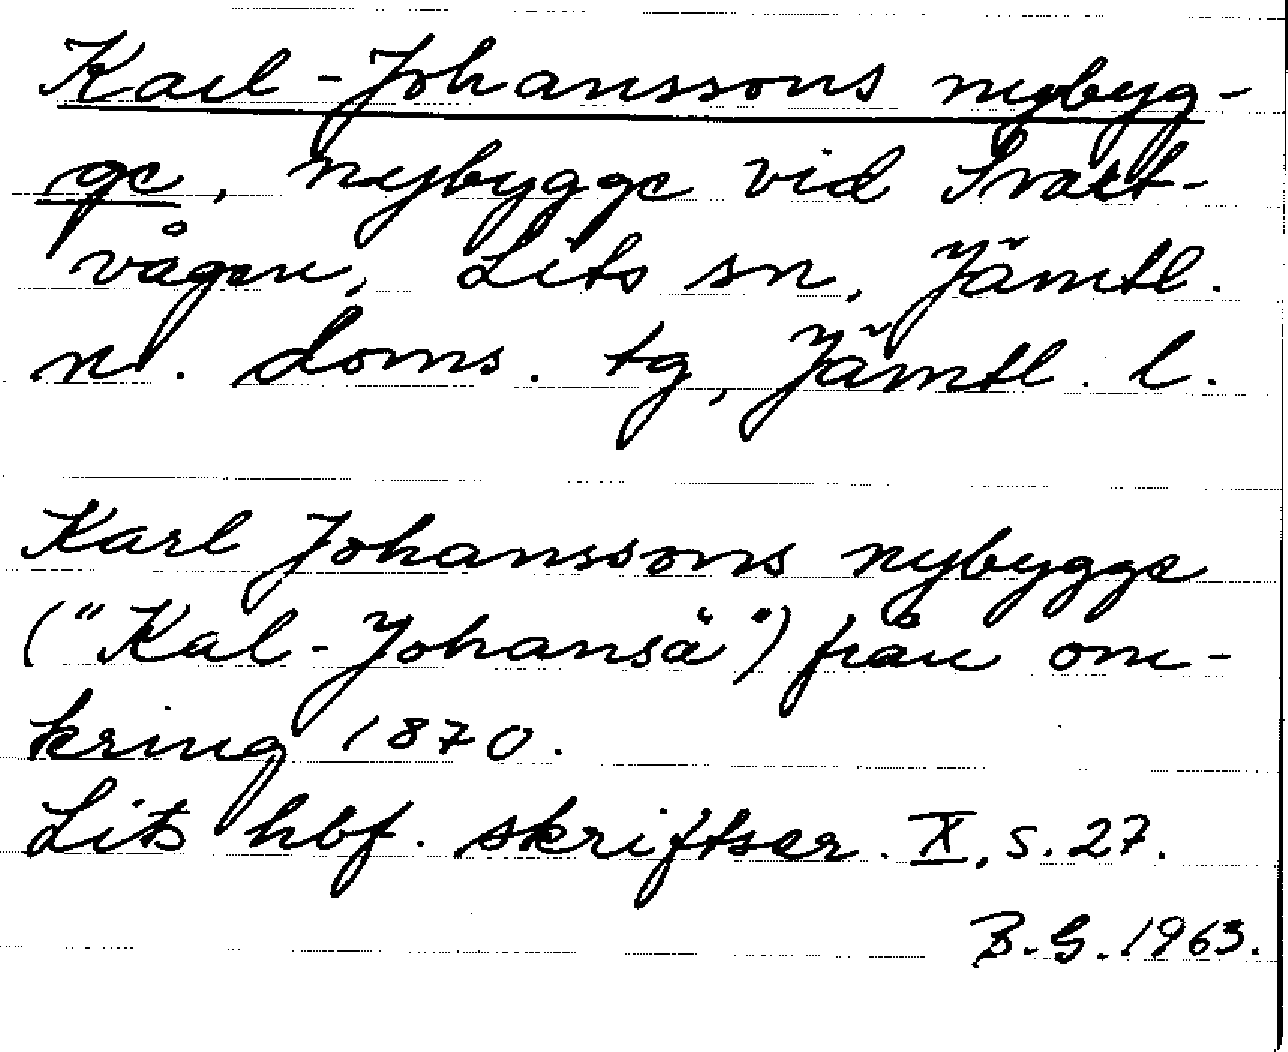 Karl-Johanssons nybyg-
ge, nybygge vid Svart-
vågen, Lits sn, Jämtl.
n. doms. tg, Jämtl. l.
Karl Johanssons nybygge
("Kal-Johansä") från om-
kring 1870.
Lits hbf. skriftser. X, s. 27.
B.G. 1963.